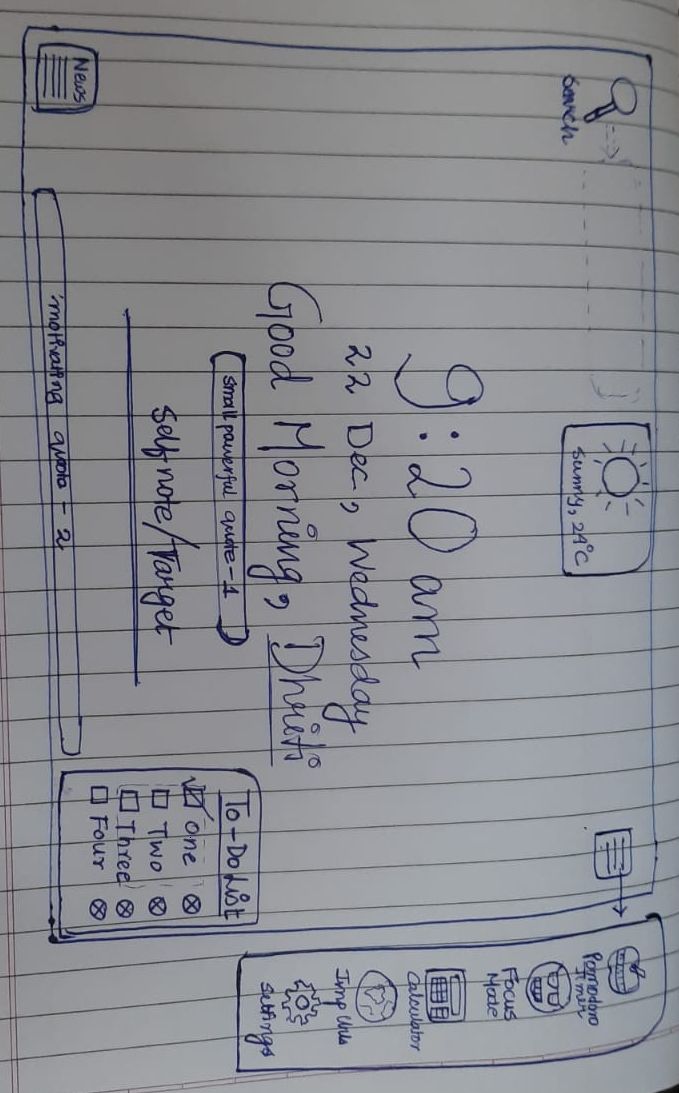 Search
sunny, 24°C
9:20 am
22 Dec, Wednesday
Good Morning, Dhriti
small powerful quote - 1
Self note/Target
motivating quote - 2
News
To-Do List
One
Two
Three
Four
Pomodoro
Timer
Focus
Mode
Calculator
Imp
Settings